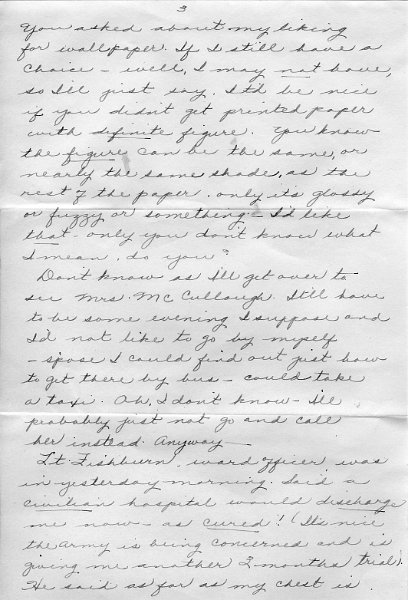 3
You asked about my liking
for wallpaper. If I still have a
choice - well, I may not have,
so I'll just say. It'd be nice
if you didn't get printed paper
with definite figure. You know
the figure can be the same, or
nearly the same shade, as the
rest of the paper. only it's glossy
or fuzzy or something - I'd like
that - only you don't know what
I mean, do you?
Don't know as I'll get over to
see Mrs. McCullough. It'll have
to be some evening I suppose and
I'd not like to go by myself
- spose I could find out just how
to get there by bus - could take
a taxi. Oh, I don't know - I'll
probably just not go and call
her instead. Anyway -
Lt Fishburn, ward officer was
in yesterday morning. Said a
civilian hospital would discharge
me now - as cured! (It's nice
the army is being concerned and is
giving me another 2-months trial).
He said as far as my chest is